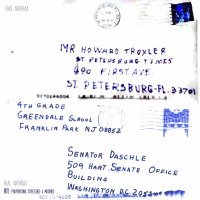 FAKE ANTHRAX
MR HOWARD TROXLER
ST PETERSBURG TIMES
490 FIRST AVE
ST PETERSBURG FL 33701
4TH GRADE
GREENDALE SCHOOL
FRANKLIN PARK NJ 08852
SENATOR DASCHLE
509 HART SENATE OFFICE
BUILDING
WASHINGTON DC 2051
REAL ANTHRAX
NOTE